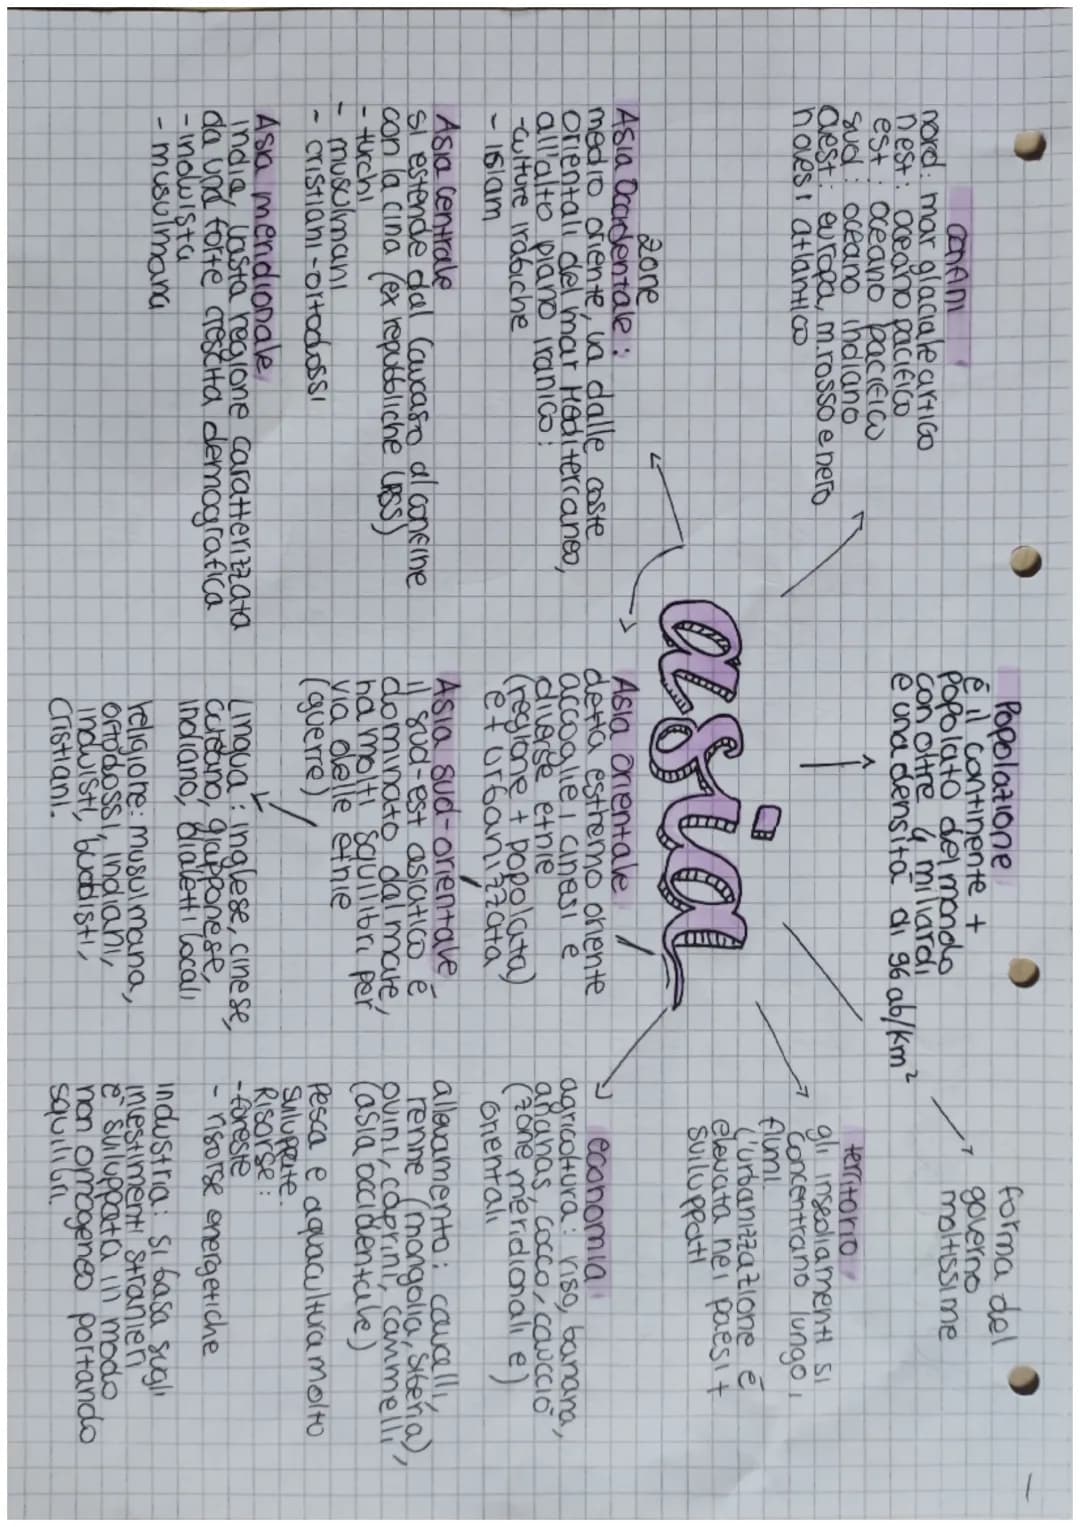 confini
nord: mar glaciale artico
nest: oceano pacifico
est: oceano pacifico
sud: oceano indiano
ovest: europa, m.rosso e nero
novest atlantico
Popolazione
è il continente +
popolato del mondo
con oltre 4 miliardi
e una densità di 96 ab/km²
forma del
governo
moltissime
territorio
gli insediamenti si
concentrano lungo i
fiumi.
L'urbanizzazione è
elevata nei paesi +
sviluppati
asia
zone
Asia Occidentale:
medio oriente, va dalle coste
orientali del mar Mediterraneo,
all'alto piano iranico:
-culture arabiche
- islam
Asia Centrale
si estende dal Caucaso al confine
con la cina (ex repubbliche URSS)
- turchi
- musulmani
- cristiani-ortodossi
Asia meridionale
india, vasta regione caratterizzata
da una forte crescita demografica
- induista
- musulmana
Asia orientale
detta estremo oriente
accoglie i cinesi e
diverse etnie
(regione + popolata)
e + urbanizzata
Asia sud-orientale
il sud-est asiatico è
dominato dal mare,
ha molti squilibri per
via delle etnie
(guerre)
Lingua: inglese, cinese,
coreano, giapponese,
indiano, dialetti locali
religione: musulmana,
ortodossi, indiani,
induisti, buddisti,
cristiani.
economia
agricoltura: riso, banana,
ananas, cocco, caucciò
(zone meridionali e)
orientali
allevamento: cavalli,
renne (mongolia, siberia),
ovini, caprini, cammelli,
(asia occidentale)
Pesca e aquacultura molto
sviluppate.
Risorse:
-foreste
- risorse energetiche
industria: si basa sugli
investimenti stranieri
è sviluppata in modo
non omogeneo portando
squilibri.